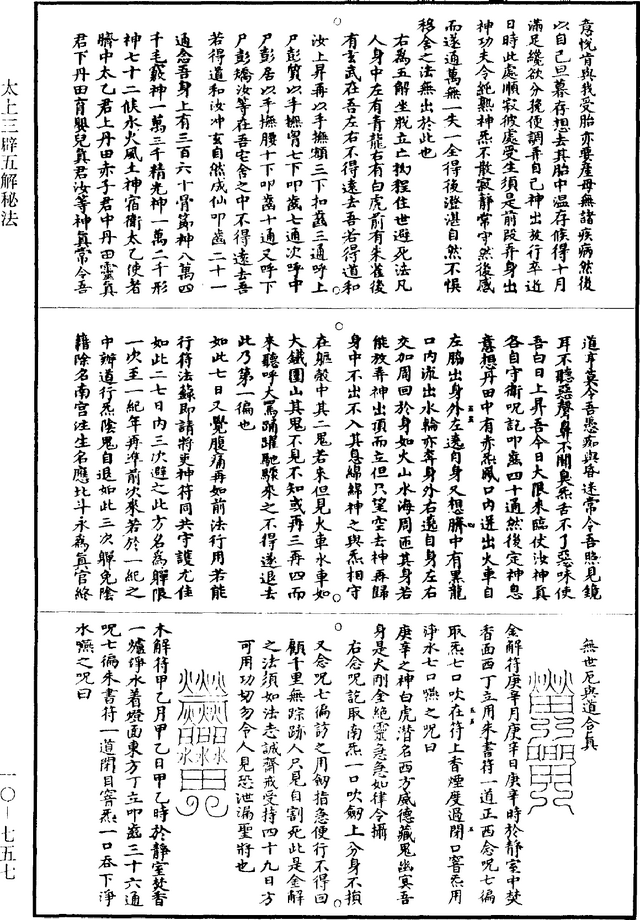 太上三辟五解秘法
一〇—七五七
意悅肯與我受胎亦要產母無諸疾病然後
以自己旦暮存想去其胎中溫存候得十月
滿足纔欲分挽使調弄自己神出放行卒近
日時此處順寂彼處受生須是前段弄身出
神功夫令純熟神炁不散寂靜常守然後感
而遂通萬無一失一舍得後澄湛自然不悞
移舍之法無出於此也
右為五解坐脫立亡執程住世避死法凡
人身中左有青龍右有白虎前有朱雀後
有玄武在吾左右不得遠去吾若得道和
汝上昇再以手撫額三下扣齒三通呼上
尸彭質以手撫胷七下叩齒七通次呼中
尸彭居以手撫腰十下叩齒十通又呼下
尸彭矯汝等在吾宅舍之中不得遠去吾
若得道和汝冲玄自然成仙叩齒二十一
通念吾身上有三百六十骨節神八萬四
千毛竅神一萬三千精光神一萬二千形
神七十二候水火風土神宿衛太乙使者
臍中太乙君上丹田赤子君中丹田靈真
君下丹田育嬰兒真君汝等神真常令吾
道亨莫令吾愚痴與昏迷常令吾照見鏡
耳不聽惡聲鼻不聞臭炁舌不了惡味使
吾白日上昇吾今日大限來臨使汝神真
各自守衛呪訖叩齒四十通然後定神息
意想丹田中有赤炁風口內迸出火車自
左脇出身外左遶自身又想臍中有黑龍
口內流出水輪亦奔身外右遶自身左右
交加周回於身如火山水海周匝其身若
能放弄神出頂而立但只望空去神再歸
身中不出不入其息綿綿神之與炁相守
在軀殼中其二鬼若來但見火車水車如
大鐵圍山其鬼不見不知或再三再四而
來聽呼大罵踊躍馳驟來之不得遂退去
此乃第一徧也
如此七日又覺腹痛再如前法行用若能
行符法籙即請將吏神符同共守護尤佳
如此二七日內三次避之此方名為躲限
一次至一紀年再準前次來若於一紀之
中辦道行炁陰鬼自退如此三次躲免陰
籍除名南宮注生名應北斗永為真官終
無世厄與道合真
金解符庚辛月庚辛日庚辛時於靜室中焚
香面西丁立用朱書符一道正西念呪七徧
取炁七口吹在符上香煙度過閉口窨炁用
淨水七口嚥之呪曰
庚辛之神白虎潛名西方威德藏鬼幽冥吾
身是大刚金絕靈急急如律令攝
右念呪訖取南炁一口吹劒上分身不損
又念呪七徧訪之用劒指急便行不得回
顧千里無踪跡人只見自割死此是金解
之法須如法志誠齋戒受持四十九日方
可用功切勿令人見恐泄漏聖將也
木解符甲乙月甲乙日甲乙時於靜室焚香
一爐淨水着燈面東方丁立叩齒三十六通
呪七徧朱書符一道閉目窨炁一口吞下淨
水嚥之呪曰